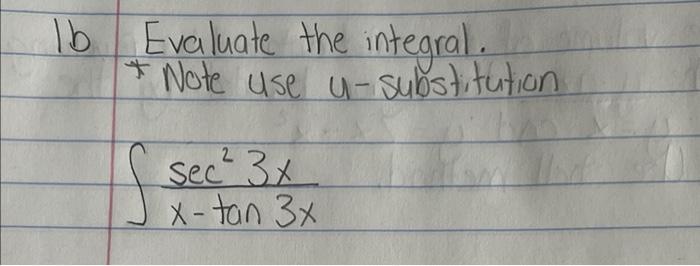 1b Evaluate the integral.
* Note use u-substitution
∫ sec² 3x
x-tan 3x